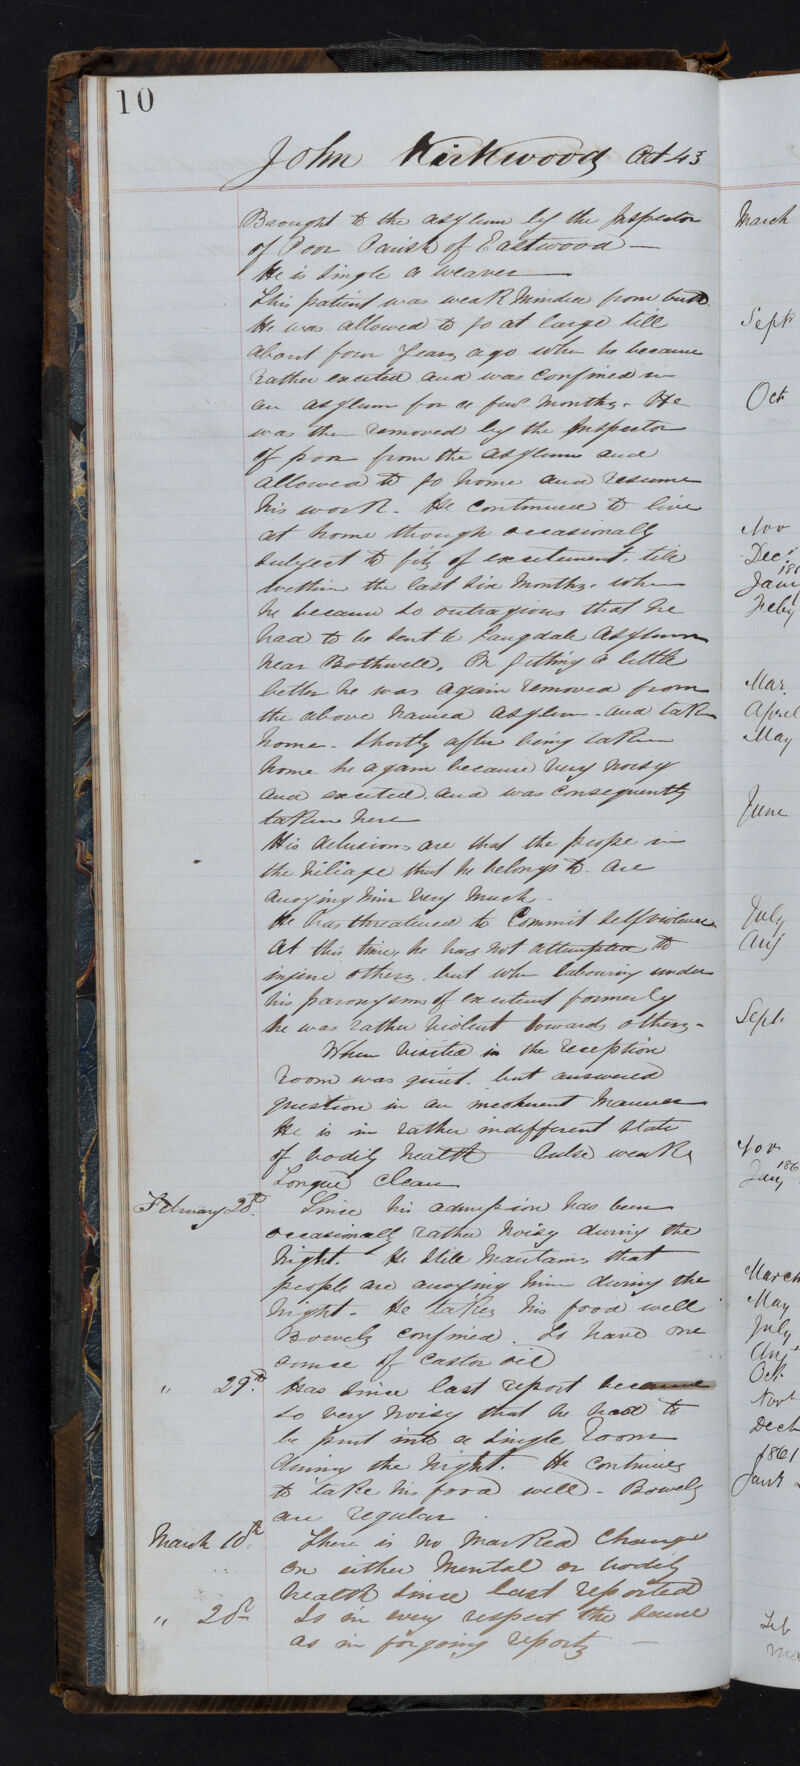 10
John Kirkwood Aet 43
Brought to the asylum by the Inspector
of Poor Parish of Eastwood —
He is single a weaver
This patient was weak minded from birth
He was allowed to go at large till
about four years ago when he became
rather excited and was confined in
an asylum for a few months. He
was then removed by the Inspector
of poor from the asylum and
allowed to go home and resume
his work. He continued to live
at home though occasionally
subject to fits of excitement till
within the last six months, when
he became so outragious that he
had to be sent to Langdale Asylum
near Bothwell. On getting a little
better he was again removed from
the above named asylum and taken
home. Shortly after being taken
home he again became very noisy
and excited and was consequently
taken here
His delusions are that the people in
the village that he belongs to are
anoying him very much.
He has threatened to commit self violence
At this time, he has not attempted to
injure others but when labouring under
his paroxysms of excitement formerly
he was rather violent towards others.
When visited in the reception
room was quiet but answered
question in an incoherent manner
He is in rather indifferent state
of bodily health Pulse weak
Tongue clean
February 20th Since his admission has been
occasionally rather noisy during the
night. He still maintains that
people are anoying him during the
night. He takes his food well
Bowels confined. To have one
ounce of castor oil
" 29th Has since last report became
so very noisy that he had to
be put into a single room
during the night. He continues
to take his food well - Bowels
are regular.
March 10th There is no marked change
on either mental or bodily
health since last reported
" 20th Is in every respect the same
as in forgoing reports —
March
Sept
Oct
Nov
Dec"
Jany
Feby
Mar.
April
May
June
July
Aug
Sept.
Nov
Jany
March
May
July
Aug
Oct.
Novr
Dect
1861
Feb